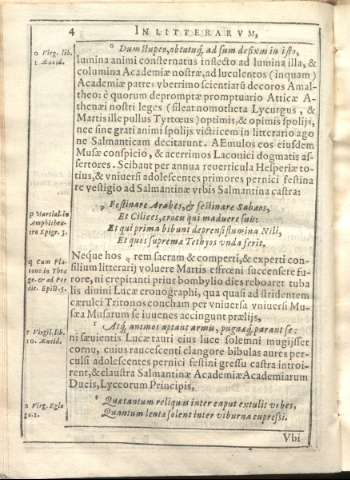 4 IN LITTERARVM,
o Virg. lib.
1. Æneid.
o Dum stupeo, obtutuq́; ad sum defixus in isto,
lumina animi consternatus inflecto ad lumina illa, &
columina Academiæ nostræ, ad luculentos (inquam)
Academiæ patres vberrimo scientiarũ decoros Amal-
theo: è quorum depromptæ promptuario Atticæ A-
thenæi nostri leges (sileat nomotheta Lycurgus, &
Martis ille pullus Tyrtœus) optimis, & opimis spolijs,
nec sine grati animi spolijs victricem in litterario ago
ne Salmanticam decitarunt. AEmulos eos eiusdem
Musæ conspicio, & acerrimos Laconici dogmatis as-
sertores. Scibant per annua
totius, & vniuersi adolescentes primores pernici festina
re vestigio ad Salmantinæ vrbis Salmantina castra:
p Martial. in
Amphithea-
tro Epigr. 3.
p Festinare Arabes, & festinare Sabæos,
Et Cilices, croceu qui maduere suo:
Et qui prima bibunt deprensi flumina Nili,
Et quos suprema Tethyos vnda ferit,
q Cum Pla-
Neque hos q rem sacram & comperti, & experti con-
silium litterarij voluere Martis effrœni succensere fu-
rore, ni crepitanti prius bombylio dies reboaret tuba
lis diuini Lucæ cronographi, qua quasi ad stridentem
cærulei Tritonos concham per vniuersa vniuersi Mu-
sæa Musarum se iuuenes accingunt prælijs,
r Virgil. lib.
10. Æneid.
r Atq́; animos aptant armis, pugnæq́; parant se:
ni sæuientis Lucæ tauri eius luce solemni mugijsset
cornu, cuius raucescenti clangore bibulas aures per-
culsi adolescentes pernici festini gressu castra introi-
rent, & claustra Salmantinæ Academiæ Academiarum
Ducis, Lyceorum Principis,
s Virg. Eglo
ga. 1.
s Quæ tantum reliquas inter caput extulit vrbes,
Quantum lenta solent inter viburna cupressi.
Vbi